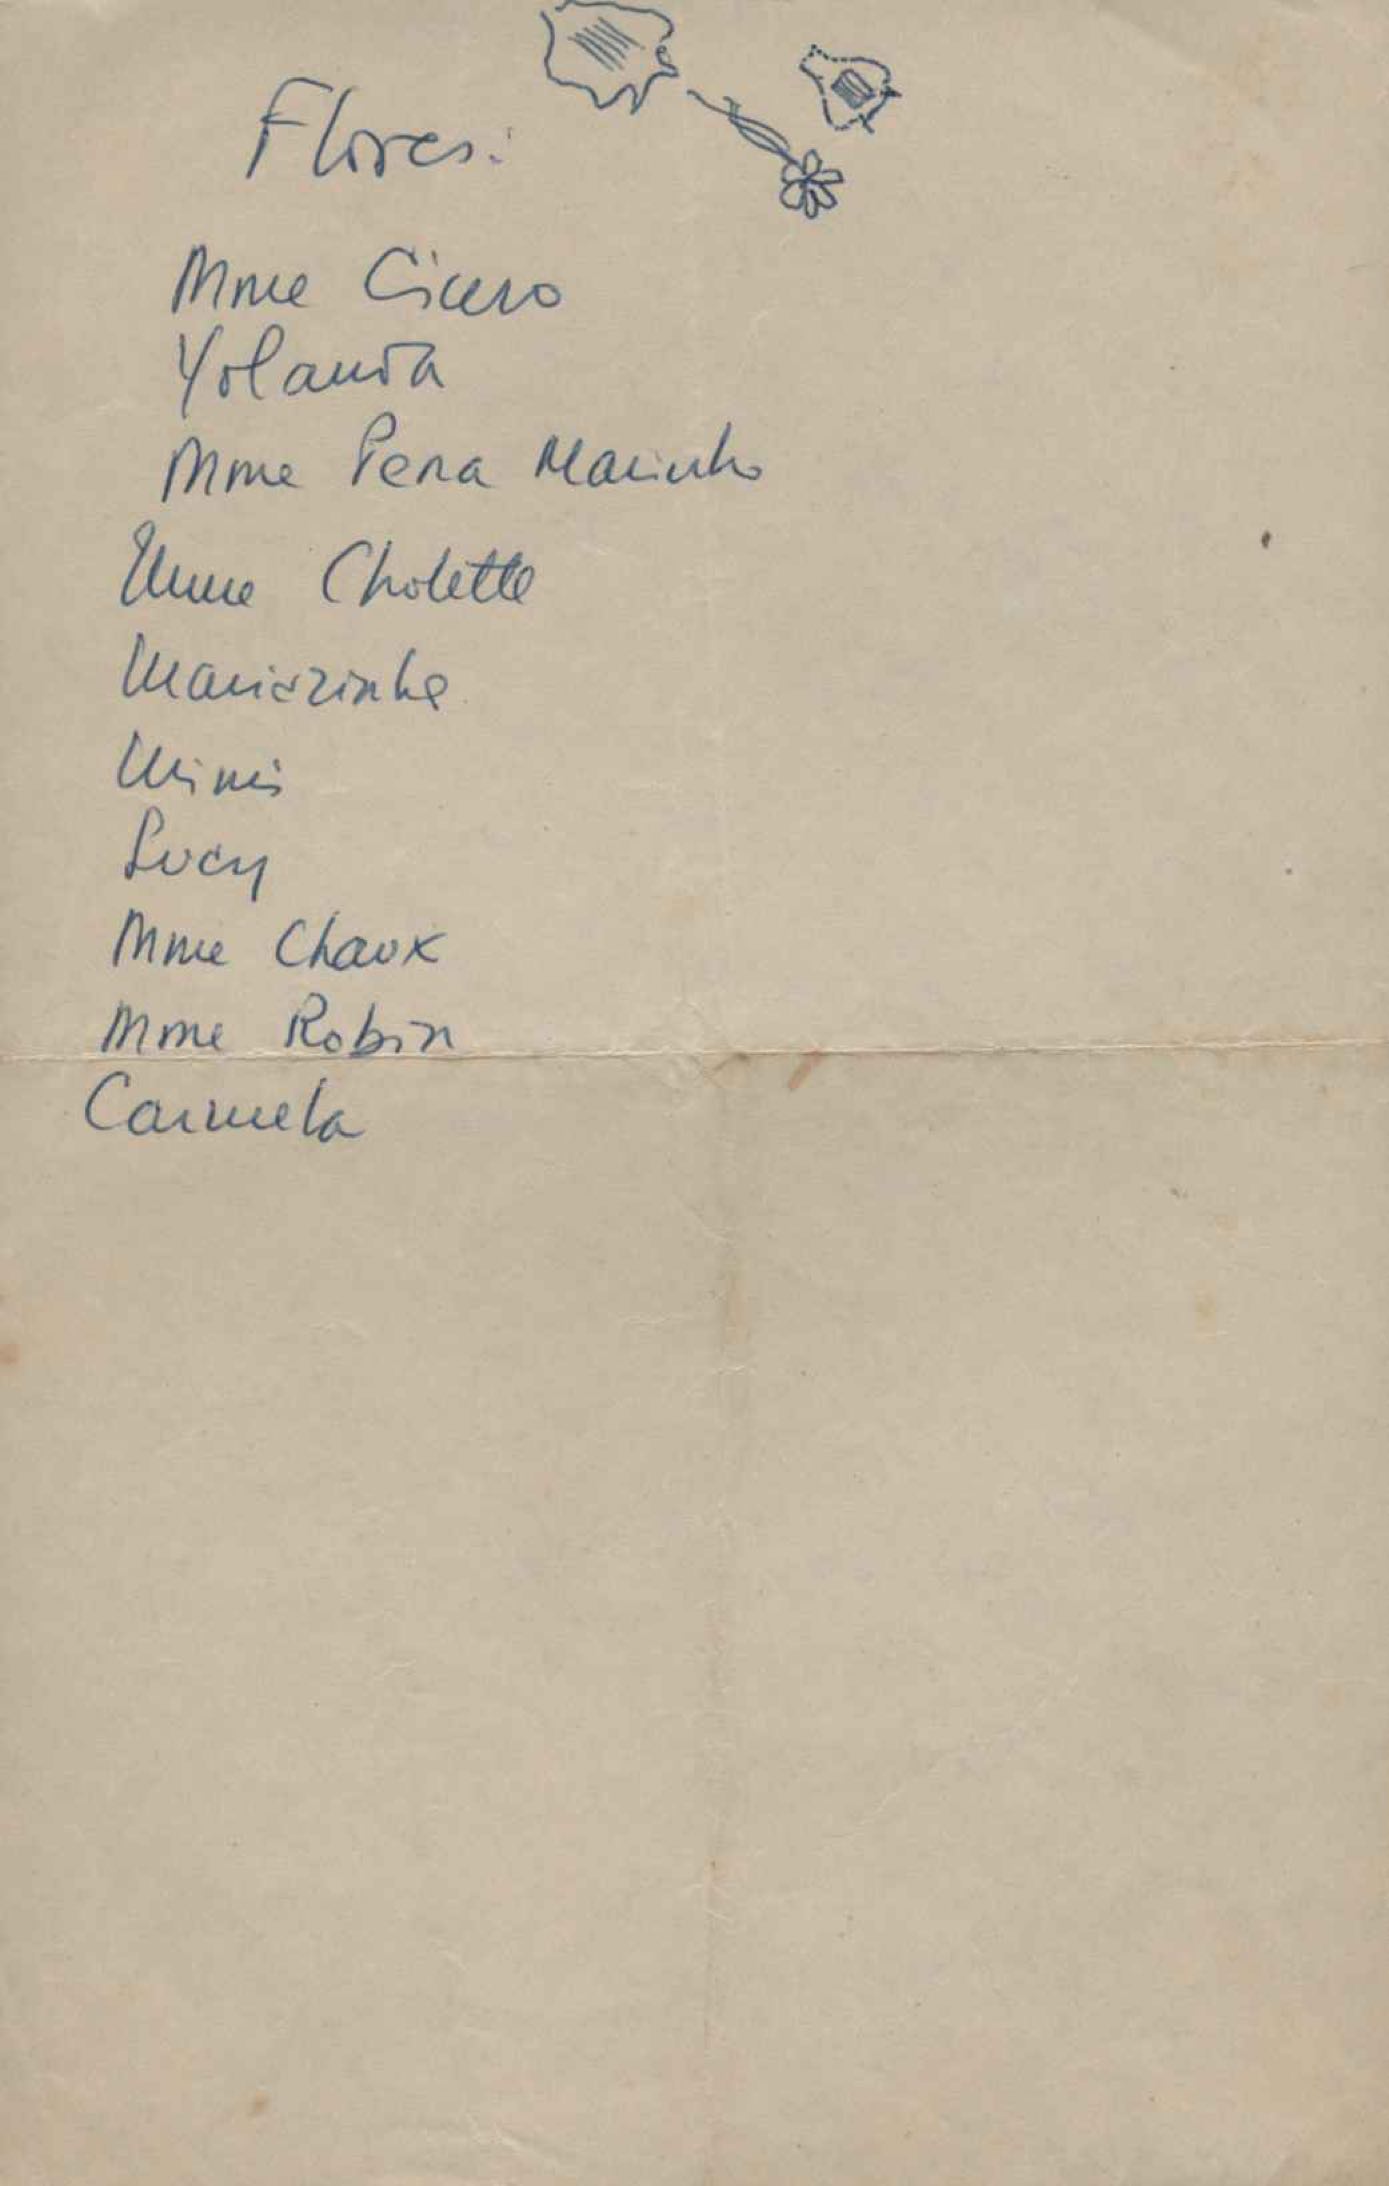 Flores:
Mme Cicero
Yolanda
Mme Pena Marinho
Mme Cholette
Mariazinha
Mimi
Lucy
Mme Chaux
Mme Robin
Carmela